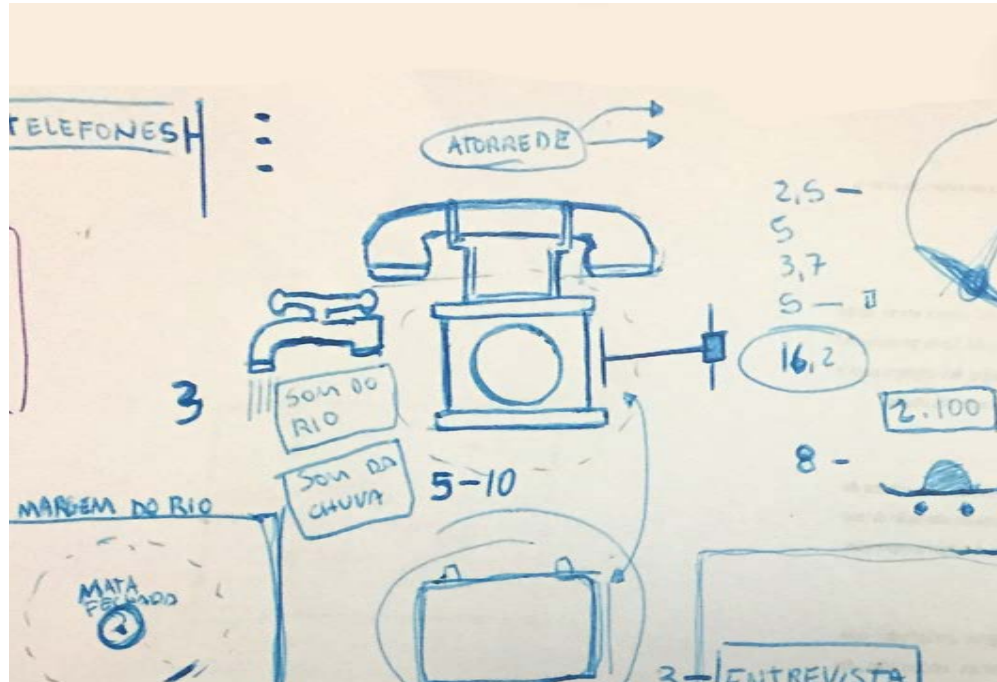 TELEFONES
ATORREDE
2,5 –
5
3,7
5 –
16,2
3
SOM DO
RIO
2.100
SOM DA
CHUVA
5-10
8 -
MARGEM DO RIO
MATA
FECHADA
3 – ENTREVISTA